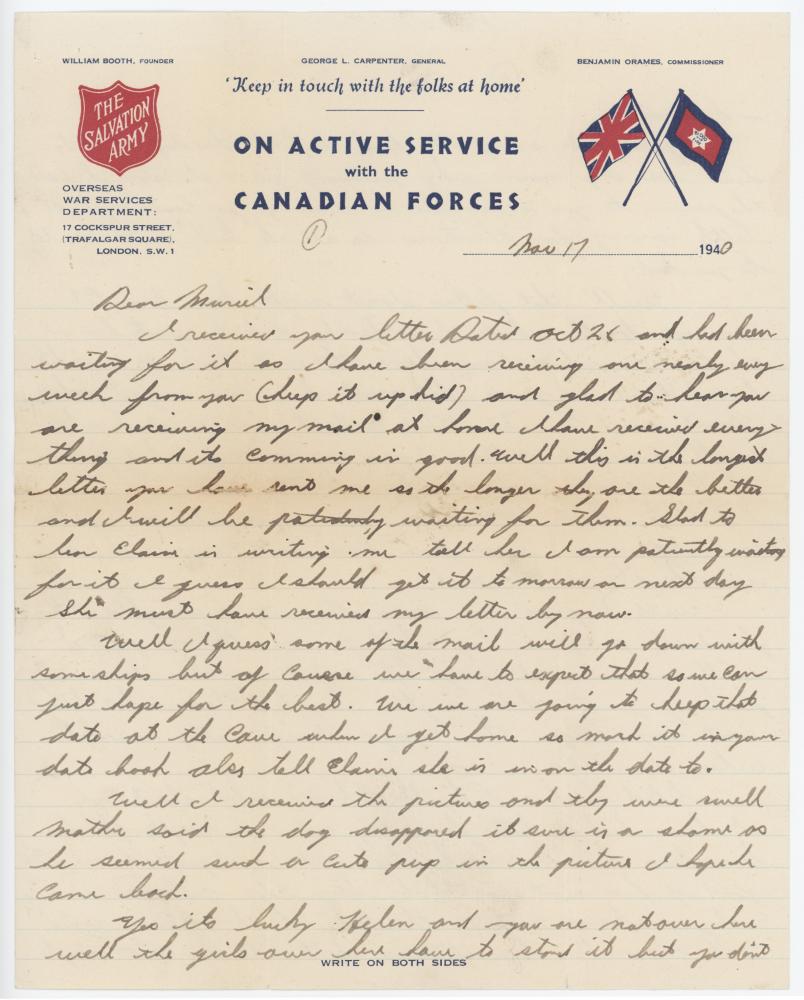 WILLIAM BOOTH, FOUNDER
GEORGE L. CARPENTER, GENERAL
BENJAMIN ORAMES, COMMISSIONER
'Keep in touch with the folks at home'
THE SALVATION ARMY
ON ACTIVE SERVICE
with the
CANADIAN FORCES
OVERSEAS
WAR SERVICES
DEPARTMENT:
17 COCKSPUR STREET,
(TRAFALGAR SQUARE),
LONDON, S.W.1
1
Nov 17 1940
Dear Muriel
I received your letter Dated Oct 26 and had been
waiting for it as I have been receiving one nearly every
week from you (keep it up kid) and glad to hear you
are receiving my mail at home I have received every
thing and its comming in good. Well this is the longest
letter you have sent me so the longer they are the better
and I will be waiting for them. Glad to
hear Elaine is writing me tell her I am patiently waiting
for it I guess I should get it to morrow or next day
She must have received my letter by now.
Well I guess some of the mail will go down with
some ships but of course we have to expect that so we can
just hope for the best. We are going to keep that
date at the Cave when I get home so mark it in your
date book also tell Elaine she is in on the date to.
Well I received the pictures and they were swell
Mother said the dog disappored it sure is a shame as
he seemed such a cute pup in the picture I hope he
came back.
Yes its lucky Helen and you are not over here
well the girls over here have to stand it but you don't
WRITE ON BOTH SIDES